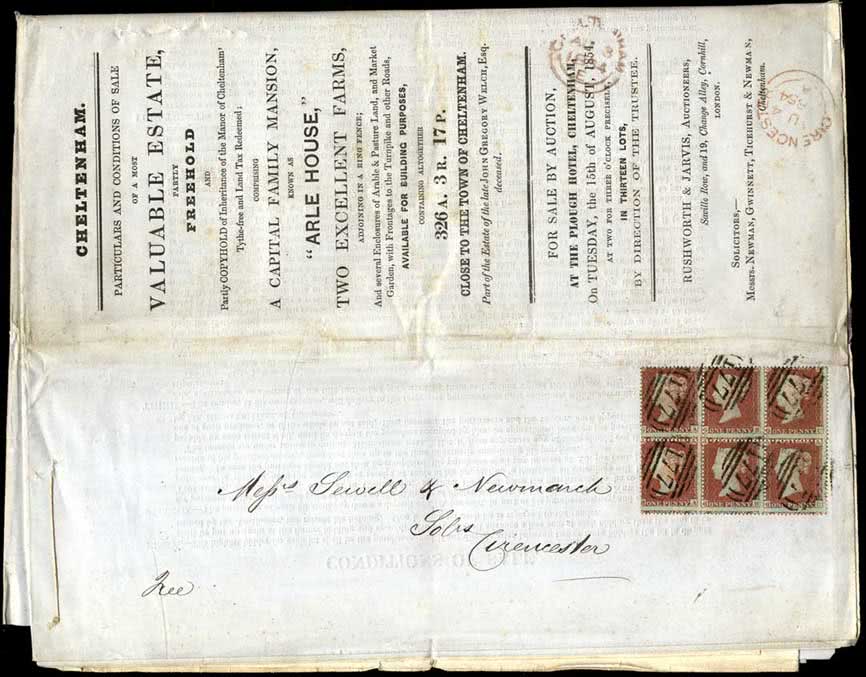 CHELTENHAM.
PARTICULARS AND CONDITIONS OF SALE
OF A MOST
VALUABLE ESTATE,
PARTLY
FREEHOLD
AND
Partly COPYHOLD of Inheritance of the Manor of Cheltenham,
Tythe-free and Land Tax Redeemed;
COMPRISING
A CAPITAL FAMILY MANSION,
KNOWN AS
"ARLE HOUSE,"
TWO EXCELLENT FARMS,
ADJOINING IN A RING FENCE;
And several Enclosures of Arable & Pasture Land, and Market
Garden, with Frontages to the Turnpike and other Roads,
AVAILABLE FOR BUILDING PURPOSES,
CONTAINING ALTOGETHER
326 A. 3 R. 17 P.
CLOSE TO THE TOWN OF CHELTENHAM.
Part of the Estate of the late JOHN GREGORY WELCH, Esq.
deceased.
FOR SALE BY AUCTION,
AT THE PLOUGH HOTEL, CHELTENHAM,
On TUESDAY, the 15th of AUGUST, 1854,
AT TWO FOR THREE O'CLOCK PRECISELY,
IN THIRTEEN LOTS,
BY DIRECTION OF THE TRUSTEE.
RUSHWORTH & JARVIS, AUCTIONEERS,
Saville Row, and 19, Change Alley, Cornhill,
LONDON.
SOLICITORS,—
Messrs. NEWMAN, GWINNETT, TICEHURST & NEWMAN,
Cheltenham.
CIRENCESTER
1854
177 177 177
ONE PENNY ONE PENNY ONE PENNY
177 177 177
ONE PENNY ONE PENNY ONE PENNY
Messrs Sewell & Newmarch
Solrs
Cirencester
Free
CONDITIONS OF SALE